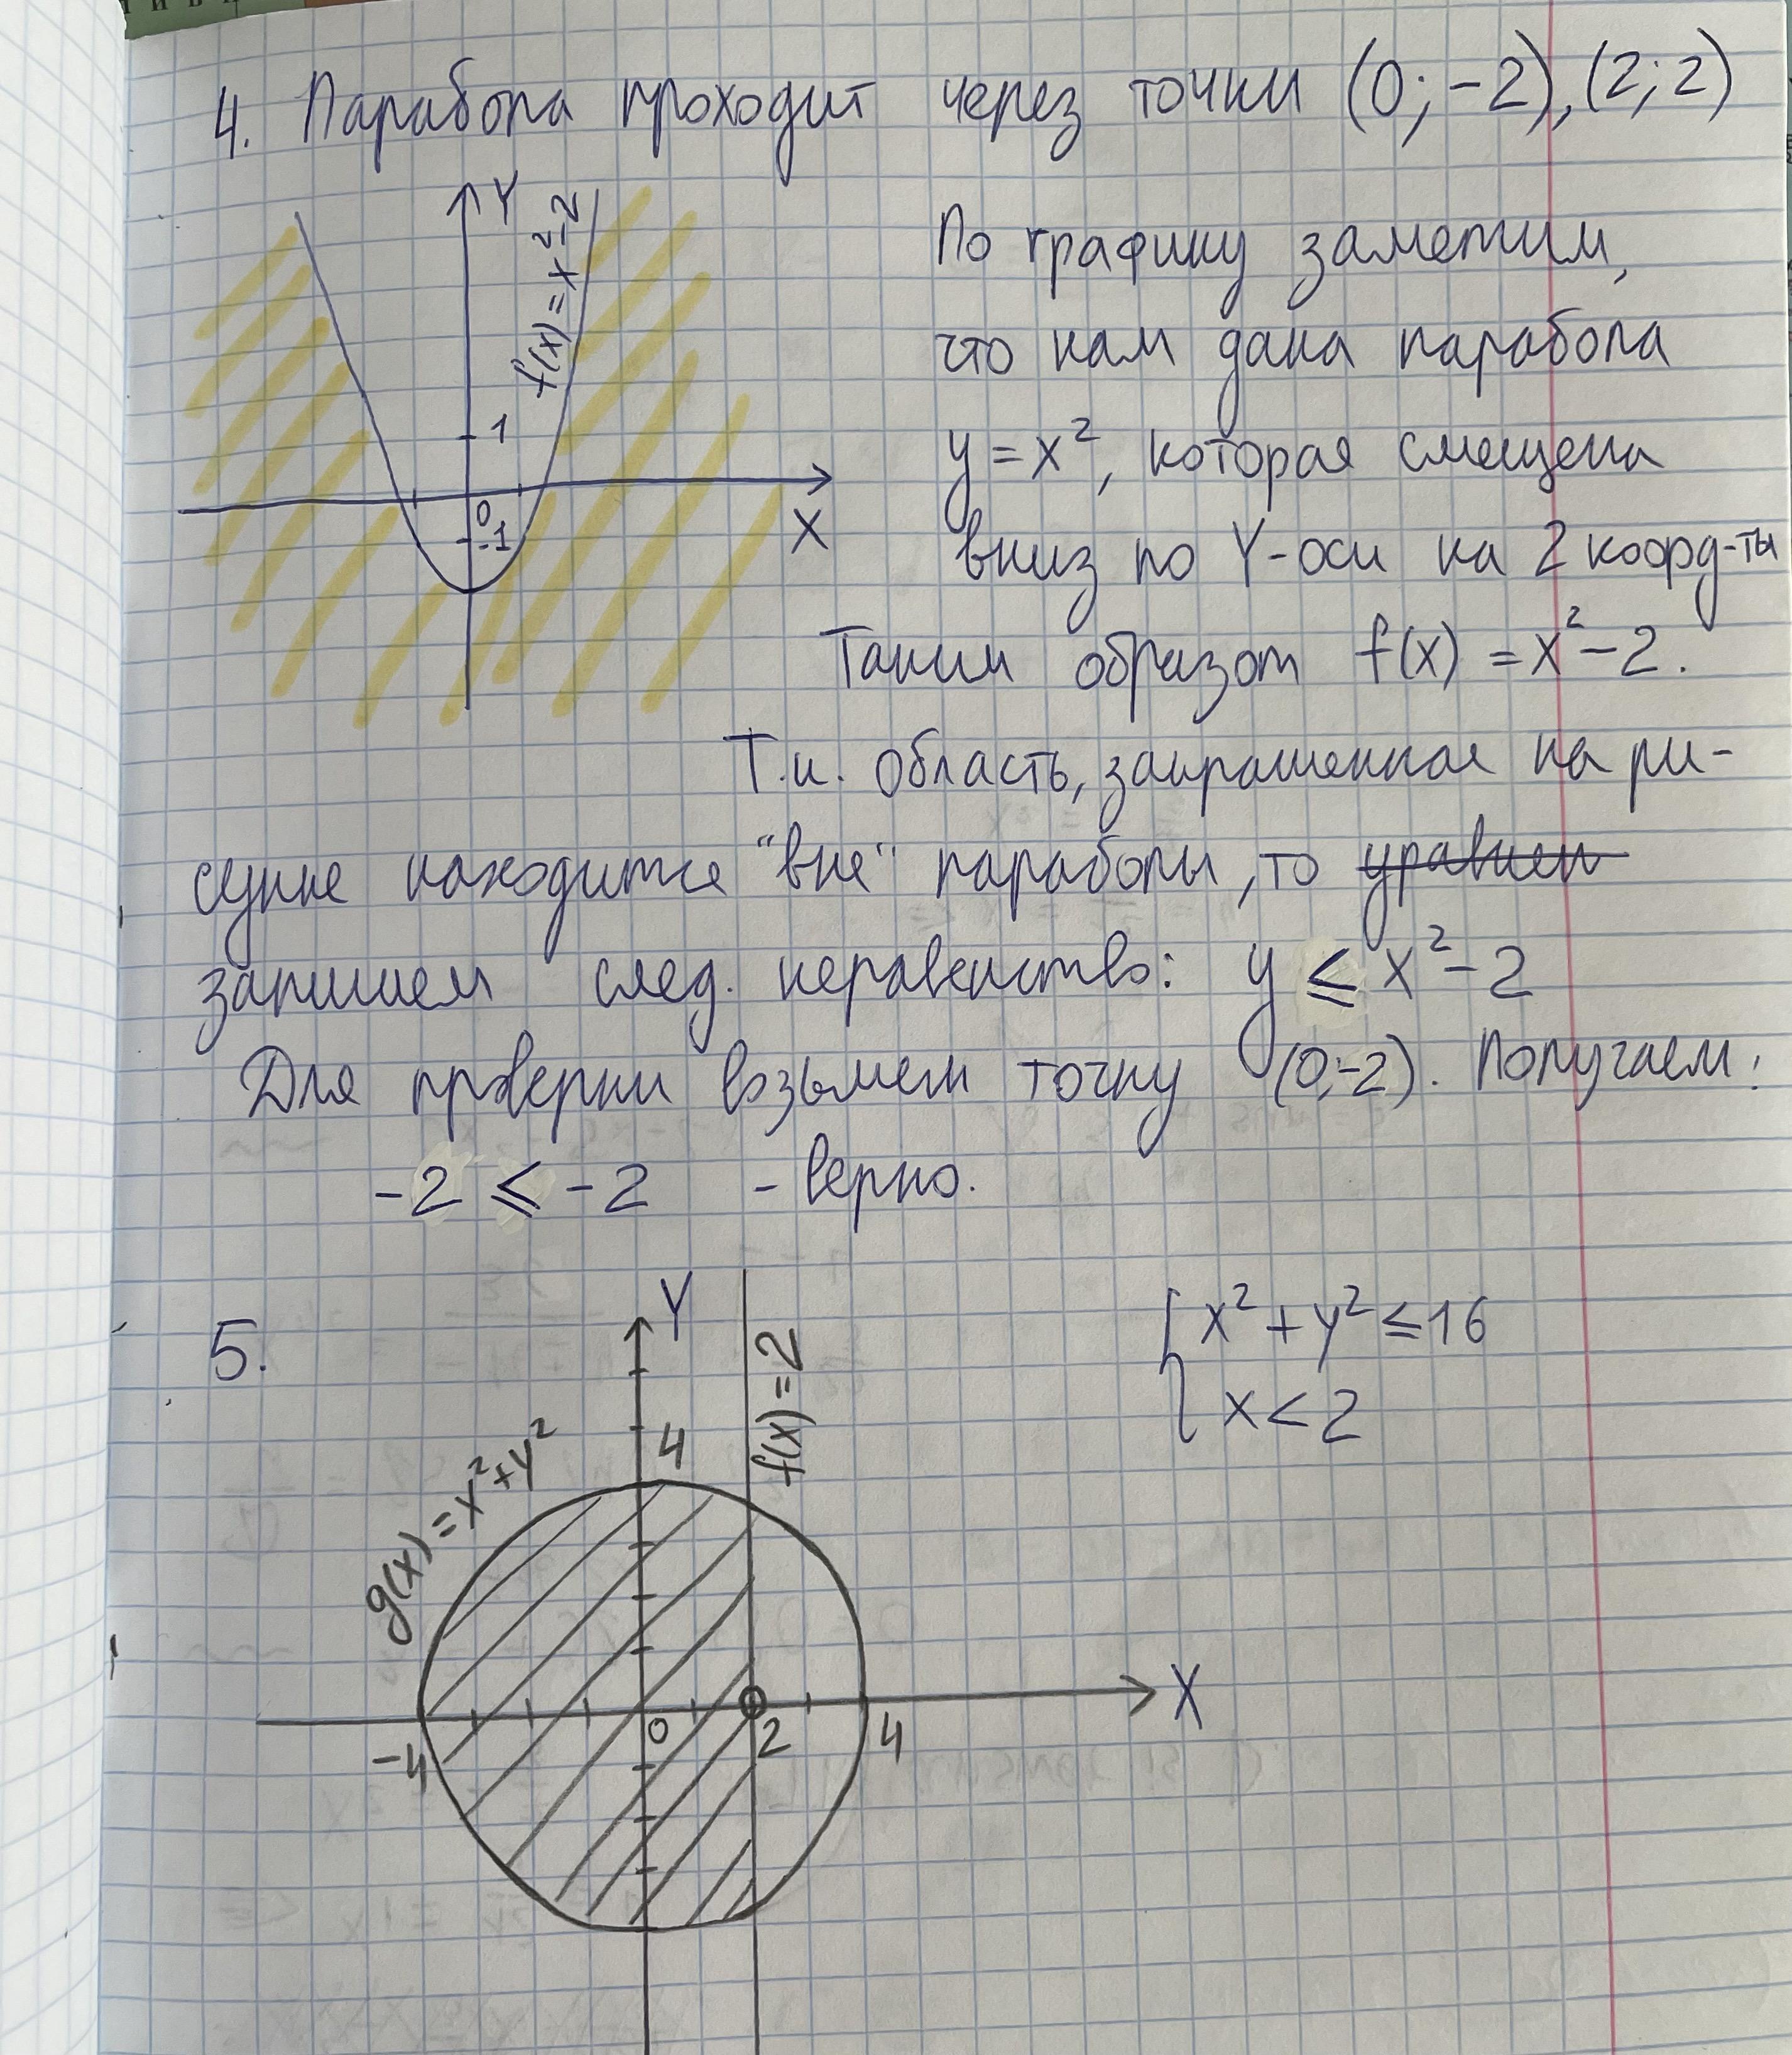 4. Парабола проходит через точки (0; -2), (2; 2)
Y
f(x) = x²-2
1
0
-1
X
По графику заметим,
что нам дана парабола
y = x², которая смещена
вниз по Y-оси на 2 коорд-ты
Таким образом f(x) = x² - 2.
Т.к. область, закрашенная на ри-
сунке находится "вне" параболы, то уравнен
запишем след. неравенство: y ⩽ x² - 2
Для проверки возьмем точку (0;-2). Получаем:
-2 ⩽ -2 - верно.
5.
Y
f(x) = 2
g(x) = x²+y²
4
-4
0
2
4
X
{ x² + y² ⩽ 16
x < 2